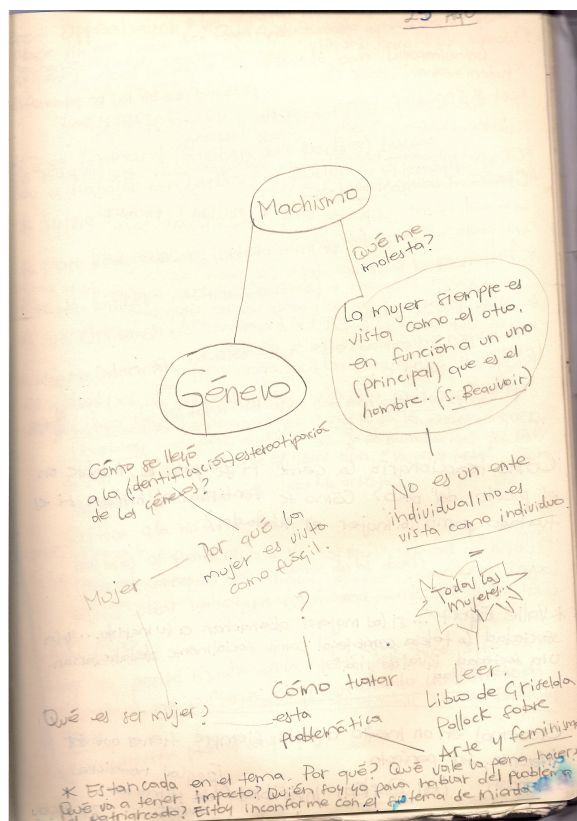 25 Ago
Machismo
Qué me
molesta?
La mujer siempre es
vista como el otro,
en función a un uno
(principal) que es el
hombre. (S. Beauvoir)
Género
Cómo se llegó
a la (identificación) estereotipación
de los géneros?
No es un ente
individual; no es
vista como individuo.
=
Por qué la
mujer es vista
como frágil.
Mujer
Todas las
mujeres...
?
Leer.
Libro de Griselda
Pollock sobre
Arte y feminismo
Cómo tratar
esta
problemática
Qué es ser mujer?
* Estancada en el tema. Por qué? Qué vale la pena hacer?
Qué va a tener impacto? Quién soy yo para hablar del problema
patriarcado? Estoy inconforme con el sistema de